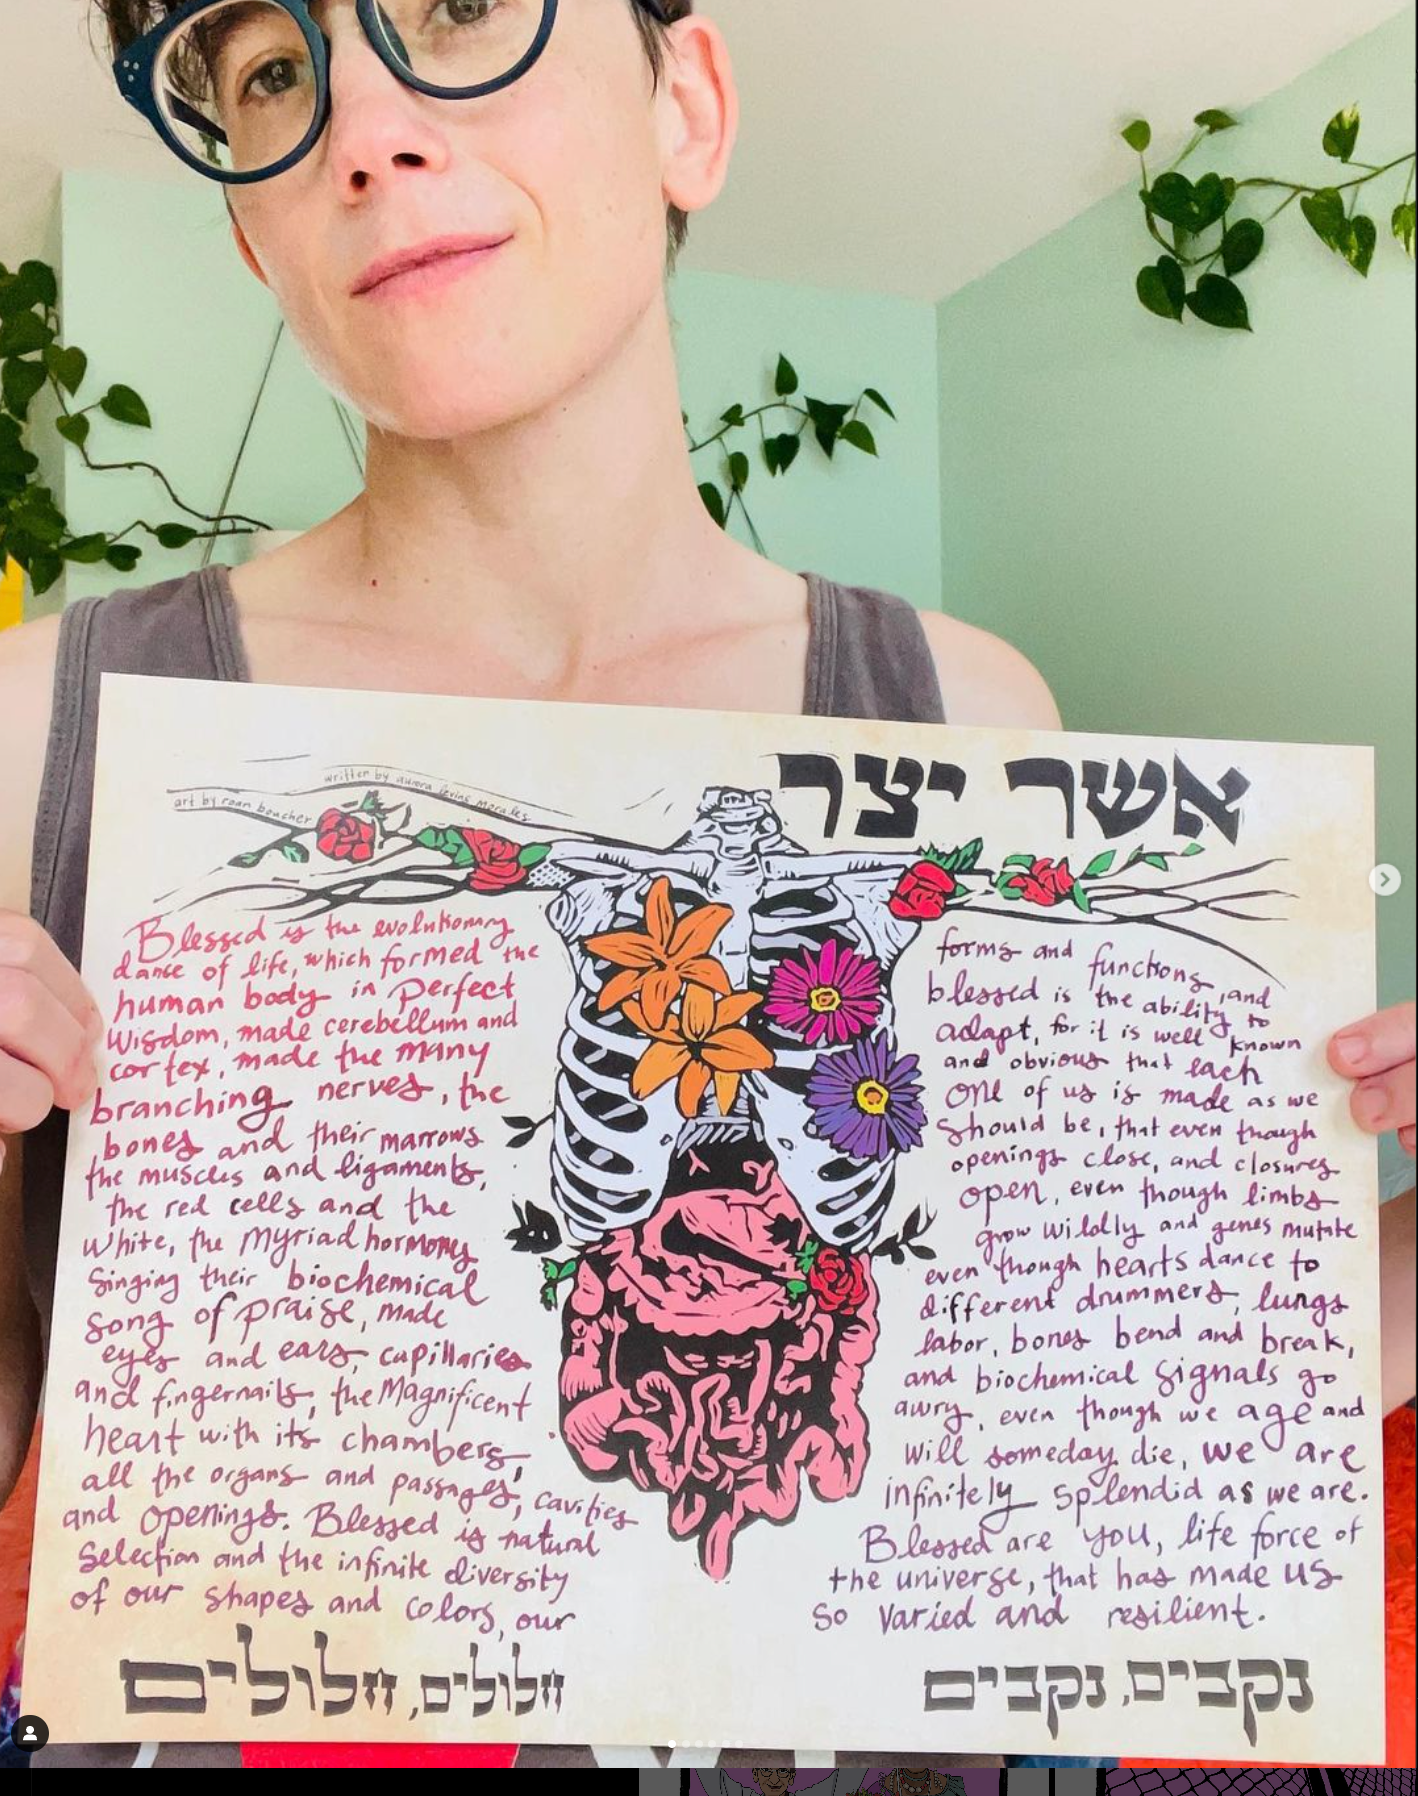 אשר יצר
written by aurora levins morales
art by roan boucher
Blessed is the evolutionary
dance of life, which formed the
human body in perfect
wisdom, made cerebellum and
cortex, made the many
branching nerves, the
bones and their marrows
the muscles and ligaments,
the red cells and the
white, the myriad hormones
singing their biochemical
song of praise, made
eyes and ears, capillaries
and fingernails, the Magnificent
heart with its chambers,
all the organs and passages, cavities
and openings. Blessed is natural
selection and the infinite diversity
of our shapes and colors, our
forms and functions, and
blessed is the ability to
adapt, for it is well known
and obvious that each
one of us is made as we
should be, that even though
openings close, and closures
open, even though limbs
grow wildly and genes mutate
even though hearts dance to
different drummers, lungs
labor, bones bend and break,
and biochemical signals go
awry, even though we age and
will someday die, we are
infinitely splendid as we are.
Blessed are you, life force of
the universe, that has made us
so varied and resilient.
נקבים, נקבים
חלולים, חלולים